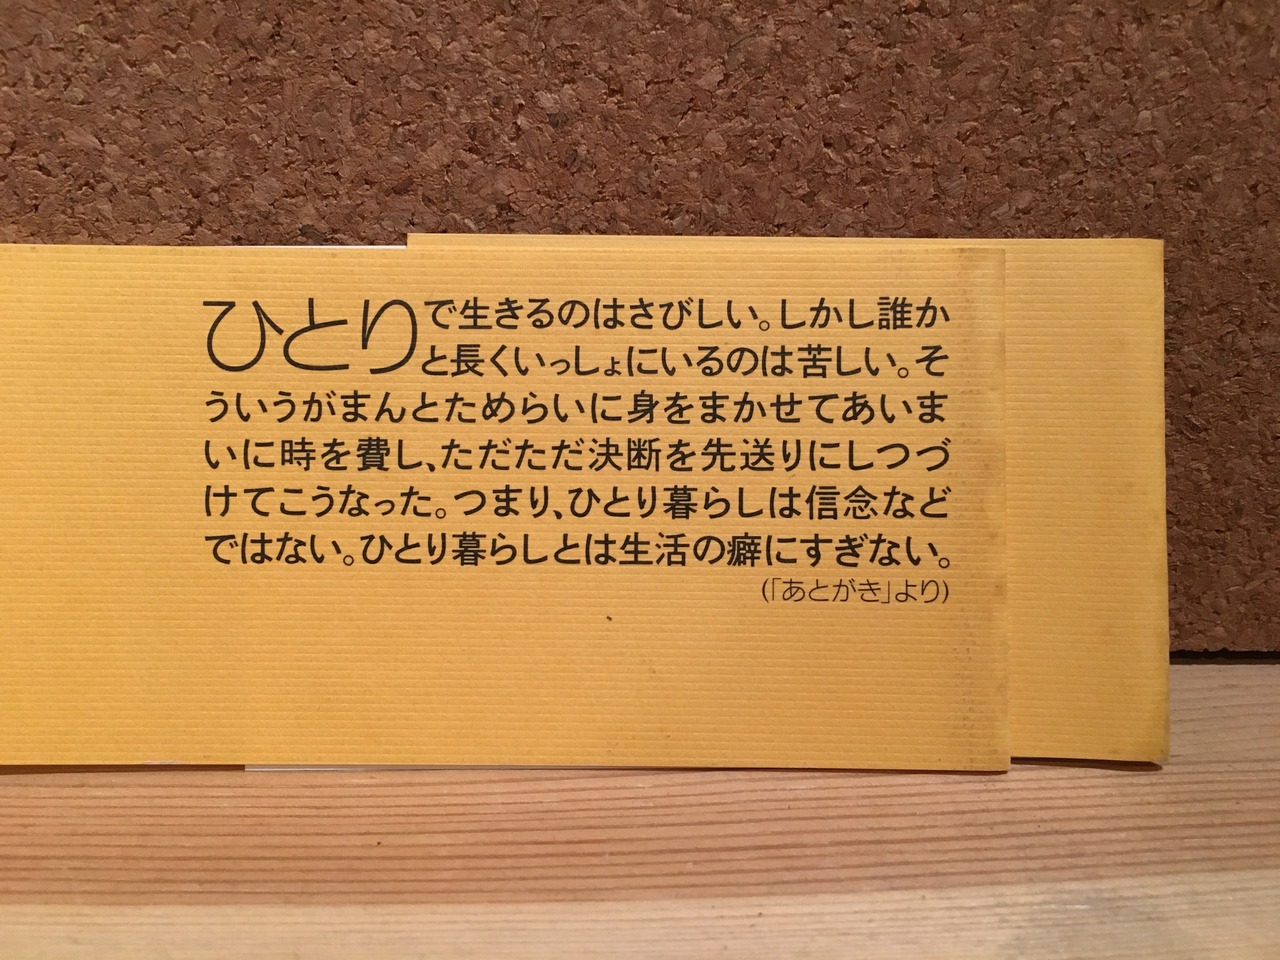 ひとりで生きるのはさびしい。しかし誰か
と長くいっしょにいるのは苦しい。そ
ういうがまんとためらいに身をまかせてあいま
いに時を費し、ただただ決断を先送りにしつづ
けてこうなった。つまり、ひとり暮らしは信念など
ではない。ひとり暮らしとは生活の癖にすぎない。
(「あとがき」より)